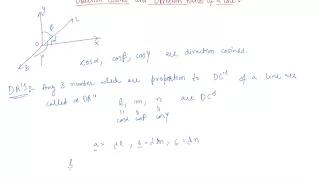 Direction Cosines and Direction Ratios of a Line:
Y
L
X
O
B
cosα, cosβ, cosγ are direction cosines.
DR'S:- Any 3 number which are proportion to DC'S of a line are
called a DR'S
l, m, n are DC'S
cosα cosβ cosγ
a = λl, b = λm, c = λn
l